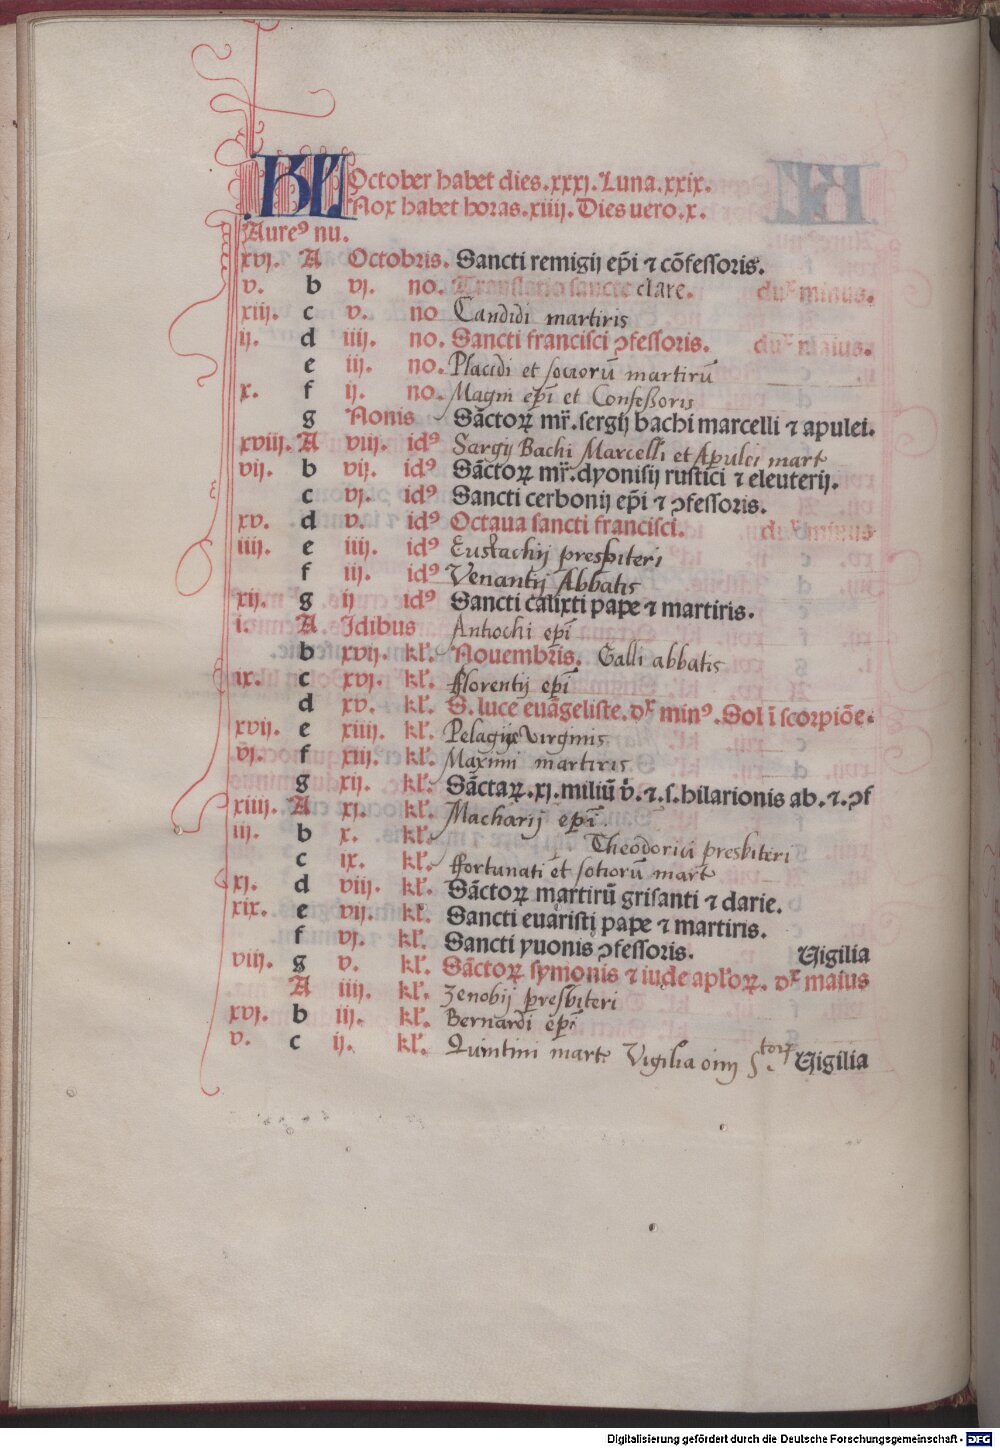 KL October habet dies.xxxj.Luna.xxix.
Nox habet horas.xiiij.Dies uero.x.
Aureꝰ nu.
xvj. A Octobris. Sancti remigij ep̄i ⁊ cōfessoris.
v. b vj. no. Translatio sancte clare. du᷒ minus.
xiij. c v. no Candidi martiris
ij. d iiij. no. Sancti francisci ↄfessoris. du᷒ maius.
e iij. no. Placidi et sociorū martirū
x. f ij. no. Magni ep̄i et Confessoris
g Nonis Sāctoꝝ mr̄. sergij bachi marcelli ⁊ apulei.
xviij. A viij. idꝰ Sargij Bachi Marcelli et Apulei mart
vij. b vij. idꝰ Sāctoꝝ mr̄.dyonisij rustici ⁊ eleuterij.
c vj. idꝰ Sancti cerbonij ep̄i ⁊ ↄfessoris.
xv. d v. idꝰ Octaua sancti francisci. du᷒ minus
iiij. e iiij. idꝰ Eustachij presbiteri
f iij. idꝰ Venantij Abbatis
xij. g ij idꝰ Sancti calixti pape ⁊ martiris.
i. A Jdibus Antiochi ep̄i
b xvij. kl̄. Nouembris. Galli abbatis
ix. c xvj. kl̄. fflorentij ep̄i
d xv. kl̄. S. luce euāgeliste. d᷒ minꝰ. Sol ī scorpiōe.
xvij. e xiiij. kl̄. Pelagie virginis
vj. f xiij. kl̄. Maximi martiris
g xij. kl̄. Sāctaꝝ.xj.miliū v̄.⁊.s.hilarionis ab.⁊.ↄf
xiiij. A xj. kl̄. Macharij ep̄i.
iij. b x. kl̄. Theodorici presbiteri
c ix. kl̄. ffortunati et sotiorū mart
xj. d viij. kl̄. Sāctoꝝ martirū grisanti ⁊ darie.
xix. e vij. kl̄. Sancti euaristj pape ⁊ martiris.
f vj. kl̄. Sancti yuonis ↄfessoris. Vigilia
viij. g v. kl̄. Sāctoꝝ symonis ⁊ iude apl̄oꝝ. d᷒ maius
A iiij. kl̄. Zenobij presbiteri
xvj. b iij. kl̄. Bernardi ep̄i
v. c ij. kl̄. Quintini mart. Vigilia oīm S.toꝝ Vigilia
Digitalisierung gefördert durch die Deutsche Forschungsgemeinschaft - DFG